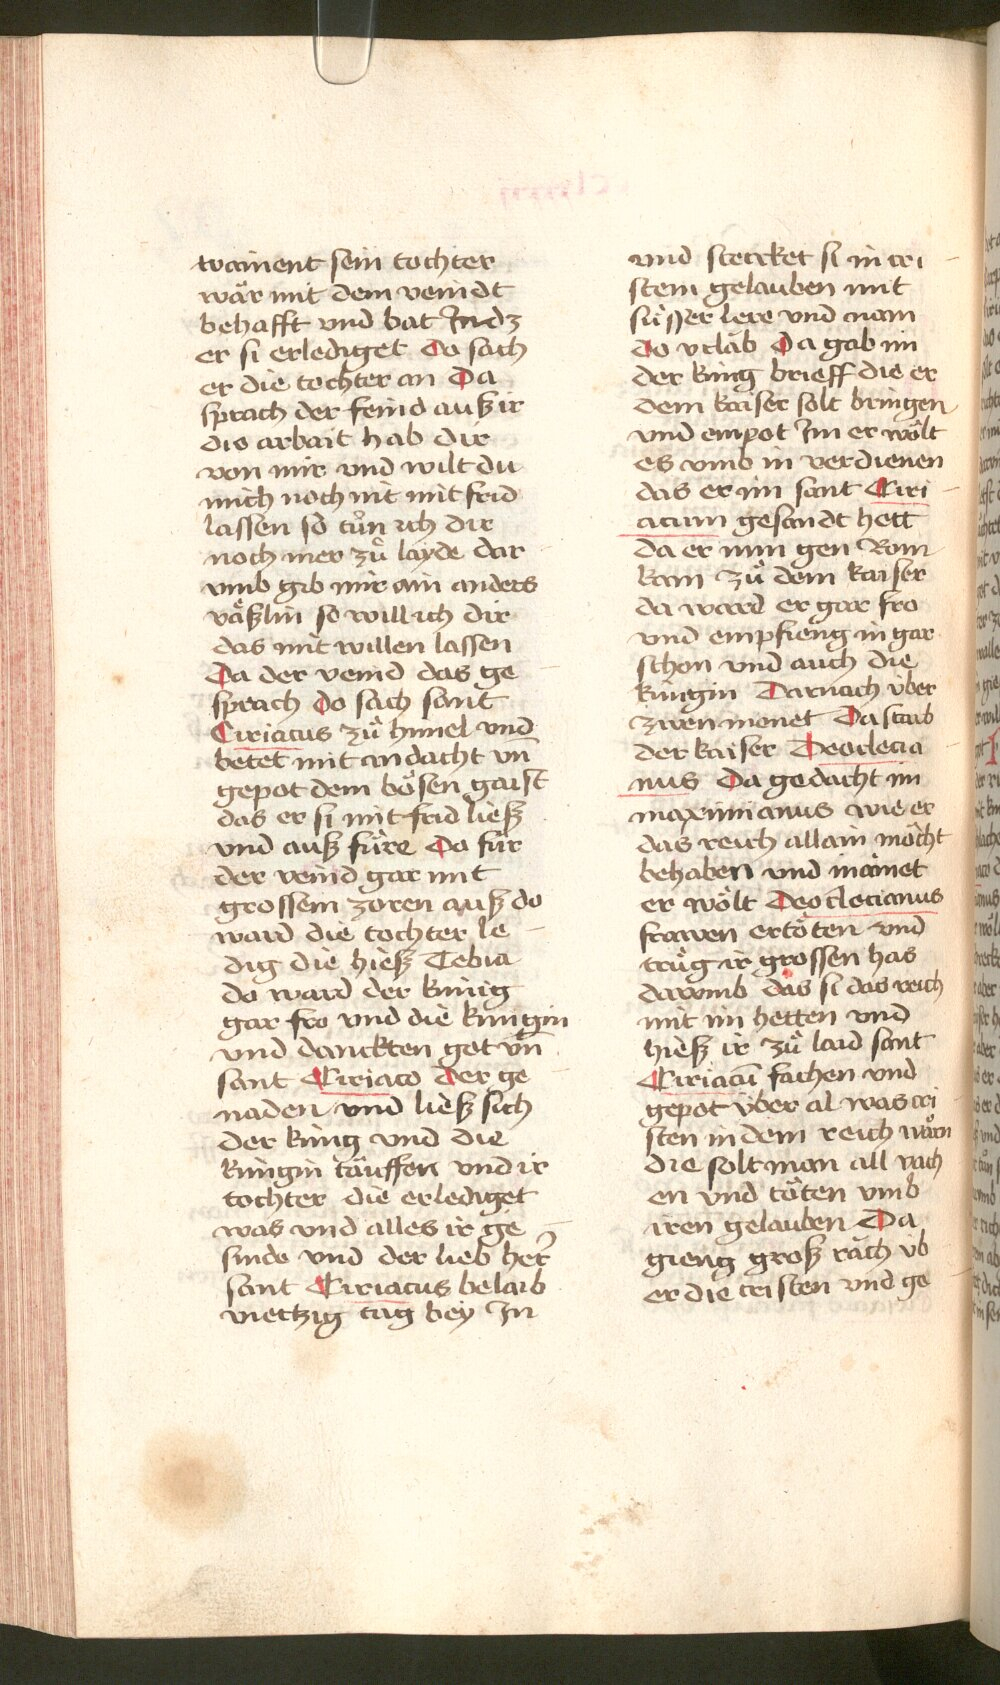 wainent sein tochter
wär mit dem veindt
behafft vnd bat In dz
er si erlediget Do sach
er die tochter an Da
sprach der feind auß ir
die arbait hab dir
von mir vnd wilt du
mich noch nit mit frid
lassen so tůn ich dir
noch mer zů layde dar
vmb gib mir ain anders
väßlin so will ich dir
das mit willen lassen
Da der veind das ge
sprach Do sach sant
Ciriacus zů himel vnd
betet mit andacht vn̄
gepot dem bösen gaist
das er si mit frid ließ
vnd auß füre Do fůr
der veind gar mit
grossem zoren auß do
ward die tochter le
dig die hieß Tebia
do ward der künig
gar fro vnd die künigin
vnd danckten got vn̄
sant Ciriaco der ge
naden vnd ließ sich
der küng vnd die
küngin täuffen vnd ir
tochter die erlediget
was vnd alles ir ge
sinde vnd der lieb her
sant Ciriacus belaib
viertzig tag bey In
vnd stercket si in cri
stem gelauben mit
süsser lere vnd nam
do vrläb Da gab im
der küng brieff die er
dem kaiser solt bringen
vnd empot Im er wölt
es vmb in verdienen
das er im sant Ciri
acum gesandt hett
da er nun gen Rom
kam zů dem kaiser
da ward er gar fro
vnd empfieng in gar
schon vnd auch die
küngin Darnach über
zwen monet Da starb
der kaiser Deoclecia
nus Da gedacht im
maximianus wie er
das reich allain möcht
behaben vnd mainet
er wölt Deoclecianus
frawen ertöten vnd
trůg ir grossen has
darvmb das si das reich
mit im hetten vnd
hieß ir zů laid sant
Ciriacū fachen vnd
gepot über al was cri
sten in dem reich wärn
die solt man all vach
en vnd töten vmb
iren gelauben Da
gieng groß räch üb
er die cristen vnd ge